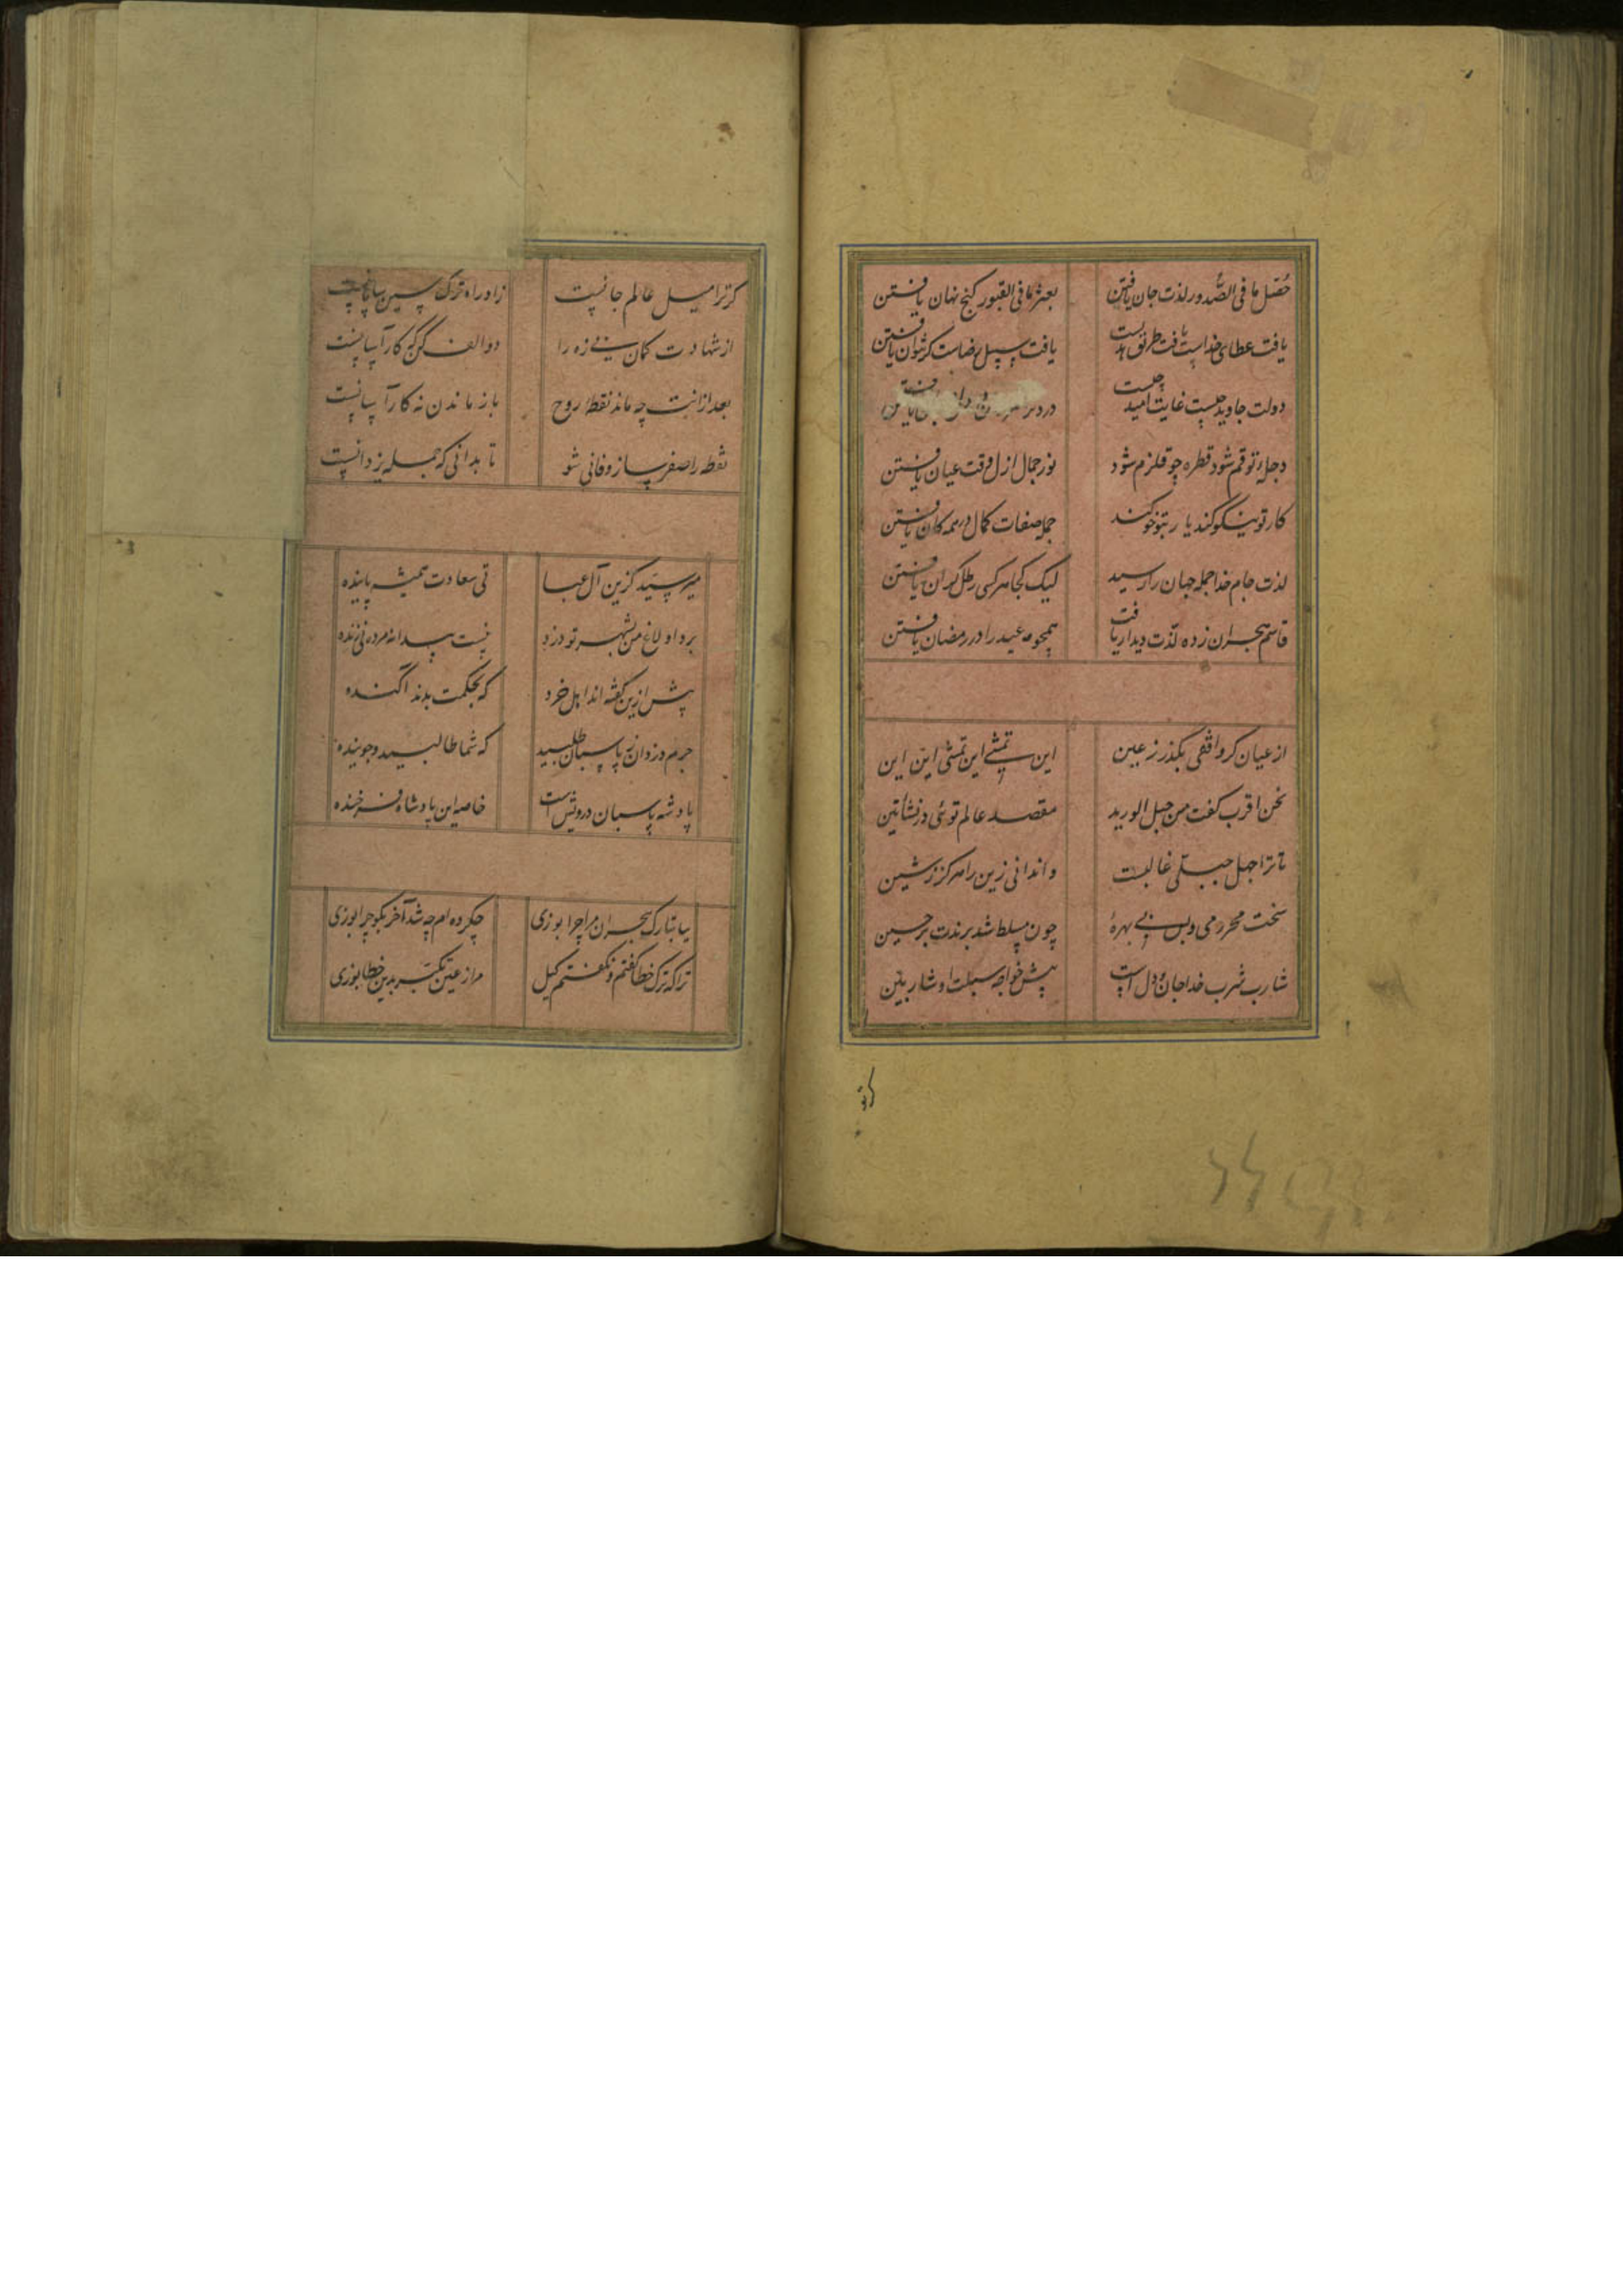 حصل ما فی الصدور لذت جان یافتن بعثر ما فی القبور کنج نهان یافتن
یافت عطای خداست یافت طریق بدست یافت سبیل رضاست کر بتوان یافتن
دولت جاوید چیست غایت امید چیست
دجلهٔ تو قم شود قطره چو قلزم شود نور جمال ازل وقت عیان یافتن
کار تو نیکو کند یار بتو خو کند جمله صفات کمال در همه کان یافتن
لذت جام خدا جمله جهان را رسید لیک کجا هر کسی رطل کران یافتن
قاسم هجران زده لذت دیدار یافت همچو مه عید را در رمضان یافتن
از عیان کر واقفی بکذر ز عین این تمشی این تمشی این این
نحن اقرب کفت من حبل الورید مقصد عالم توئی در نشأتین
تا ترا جهل جبلی غالبست وا ندانی زین را هرکز ز شین
سخت محرومی و بس بی بهرهٔ چون مسلط شد برندت بر حسین
شارب شرب خدا جان و دل است پیش خواجه سبلت او شاربین
کر تو
کر ترا میل عالم جانیست زاد راه ترک
از شهادت کمان بی زه را دو الف کن که کار آسانیست
بعد از اینت چه ماند نقطهٔ روح باز ماندن نه کار آسانیست
نقطه را صفر ساز و فانی شو تا بدانی که جمله یزدانیست
میر سید کزین آل عبا تی سعادت همیشه پاینده
برد اولاغ من بشهر تو دزد نیست پیدا نه مرده نی زنده
پیش ازین کفته اند اهل خرد که بحکمت بدند آکنده
جرم دزدان ز پاسبان طلبید که شما طالبید و جوینده
پادشه پاسبان درویش است خاصه این پادشاه فرخنده
بیا بتارک هجران مرا چرا بوزی چکرده ام چه شد آخر بکو چرا بوزی
ترا که ترک خطا کفتم و نکفتم کیل مرا ز عین تکبر بدین خطا بوزی